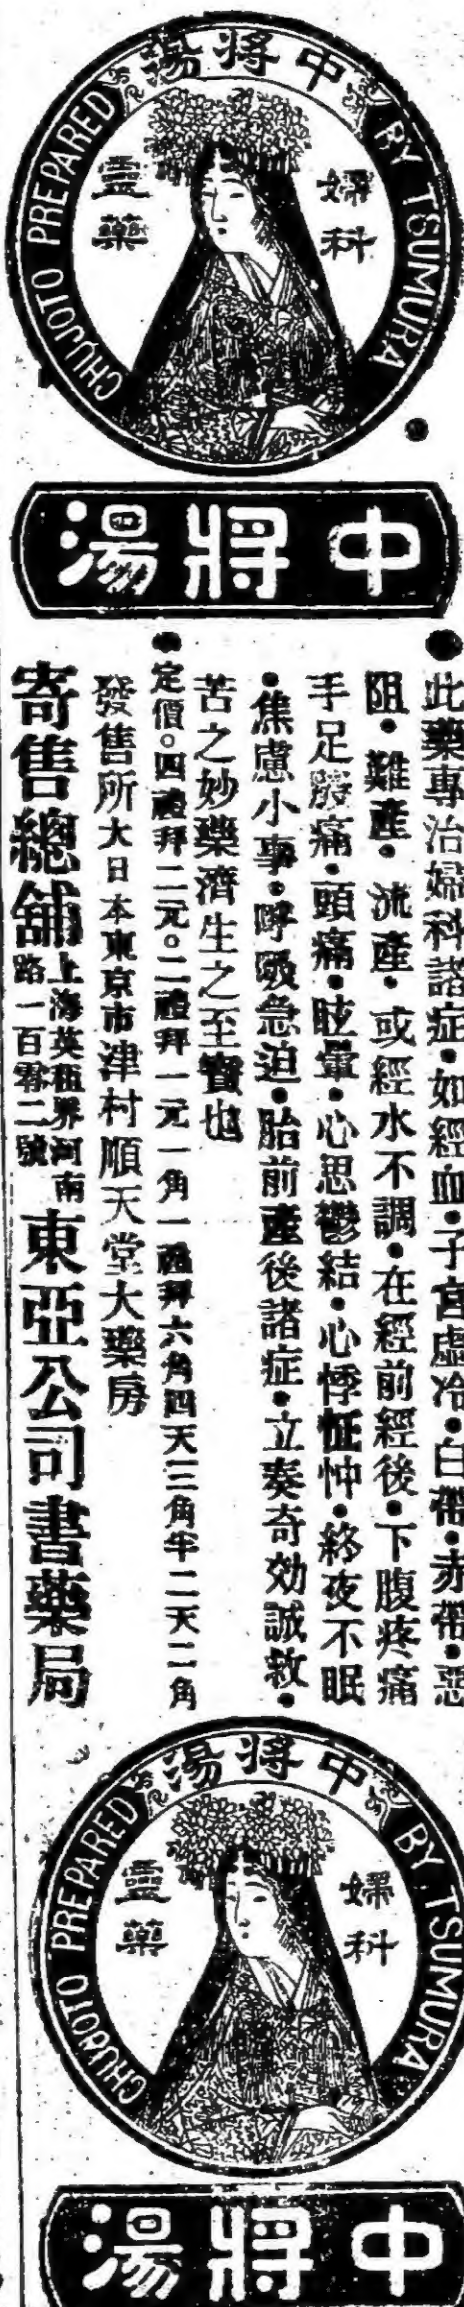 中將湯
CHUJOTO PREPARED BY TSUMURA
婦科
靈藥
中將湯
●此藥專治婦科諸症・如經血・子宮虛冷・白帶・赤帶・惡
阻・難產・流產・或經水不調・在經前經後・下腹疼痛
手足酸痛・頭痛・眩暈・心思鬱結・心悸怔忡・終夜不眠
・焦慮小事・呼吸急迫・胎前產後諸症・立奏奇効誠救・
苦之妙藥濟生之至寶也
●定價。四禮拜二元。二禮拜一元一角一禮拜六角四天三角半二天二角
發售所大日本東京市津村順天堂大藥房
寄售總舖上海英租界河南路一百零二號東亞公司書藥局
中將湯
CHUJOTO PREPARED BY TSUMURA
婦科
靈藥
中將湯